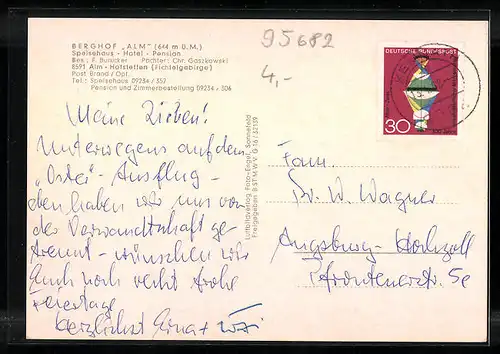 BERGHOF „ALM" (644 m ü.M.)
Speisehaus - Hotel - Pension
Bes.: F. Buracker Pächter: Chr. Gaszkowski
8591 Alm - Holstetten (Fichtelgebirge)
Post Brand / Opf.
Tel.: Speisehaus 09234 / 352
Pension und Zimmerbestellung 09234 / 306
95682
4,-
DEUTSCHE BUNDESPOST
30
Meine Lieben!
Unterwegs auf dem
„Oster" - Ausflug -
haben wir uns von
der Verwandtschaft ge
trennt - wünschen wir
Euch noch recht frohe
Feiertage
herzlichst Erna +
Luftbildverlag Foto-Engel, Sonnefeld
Freigegeben B.ST.M.W.V. G-16 / 32159
Fam.
Dr. W. Wagner
Augsburg - Hochzoll
Pfrontenerstr. 5e